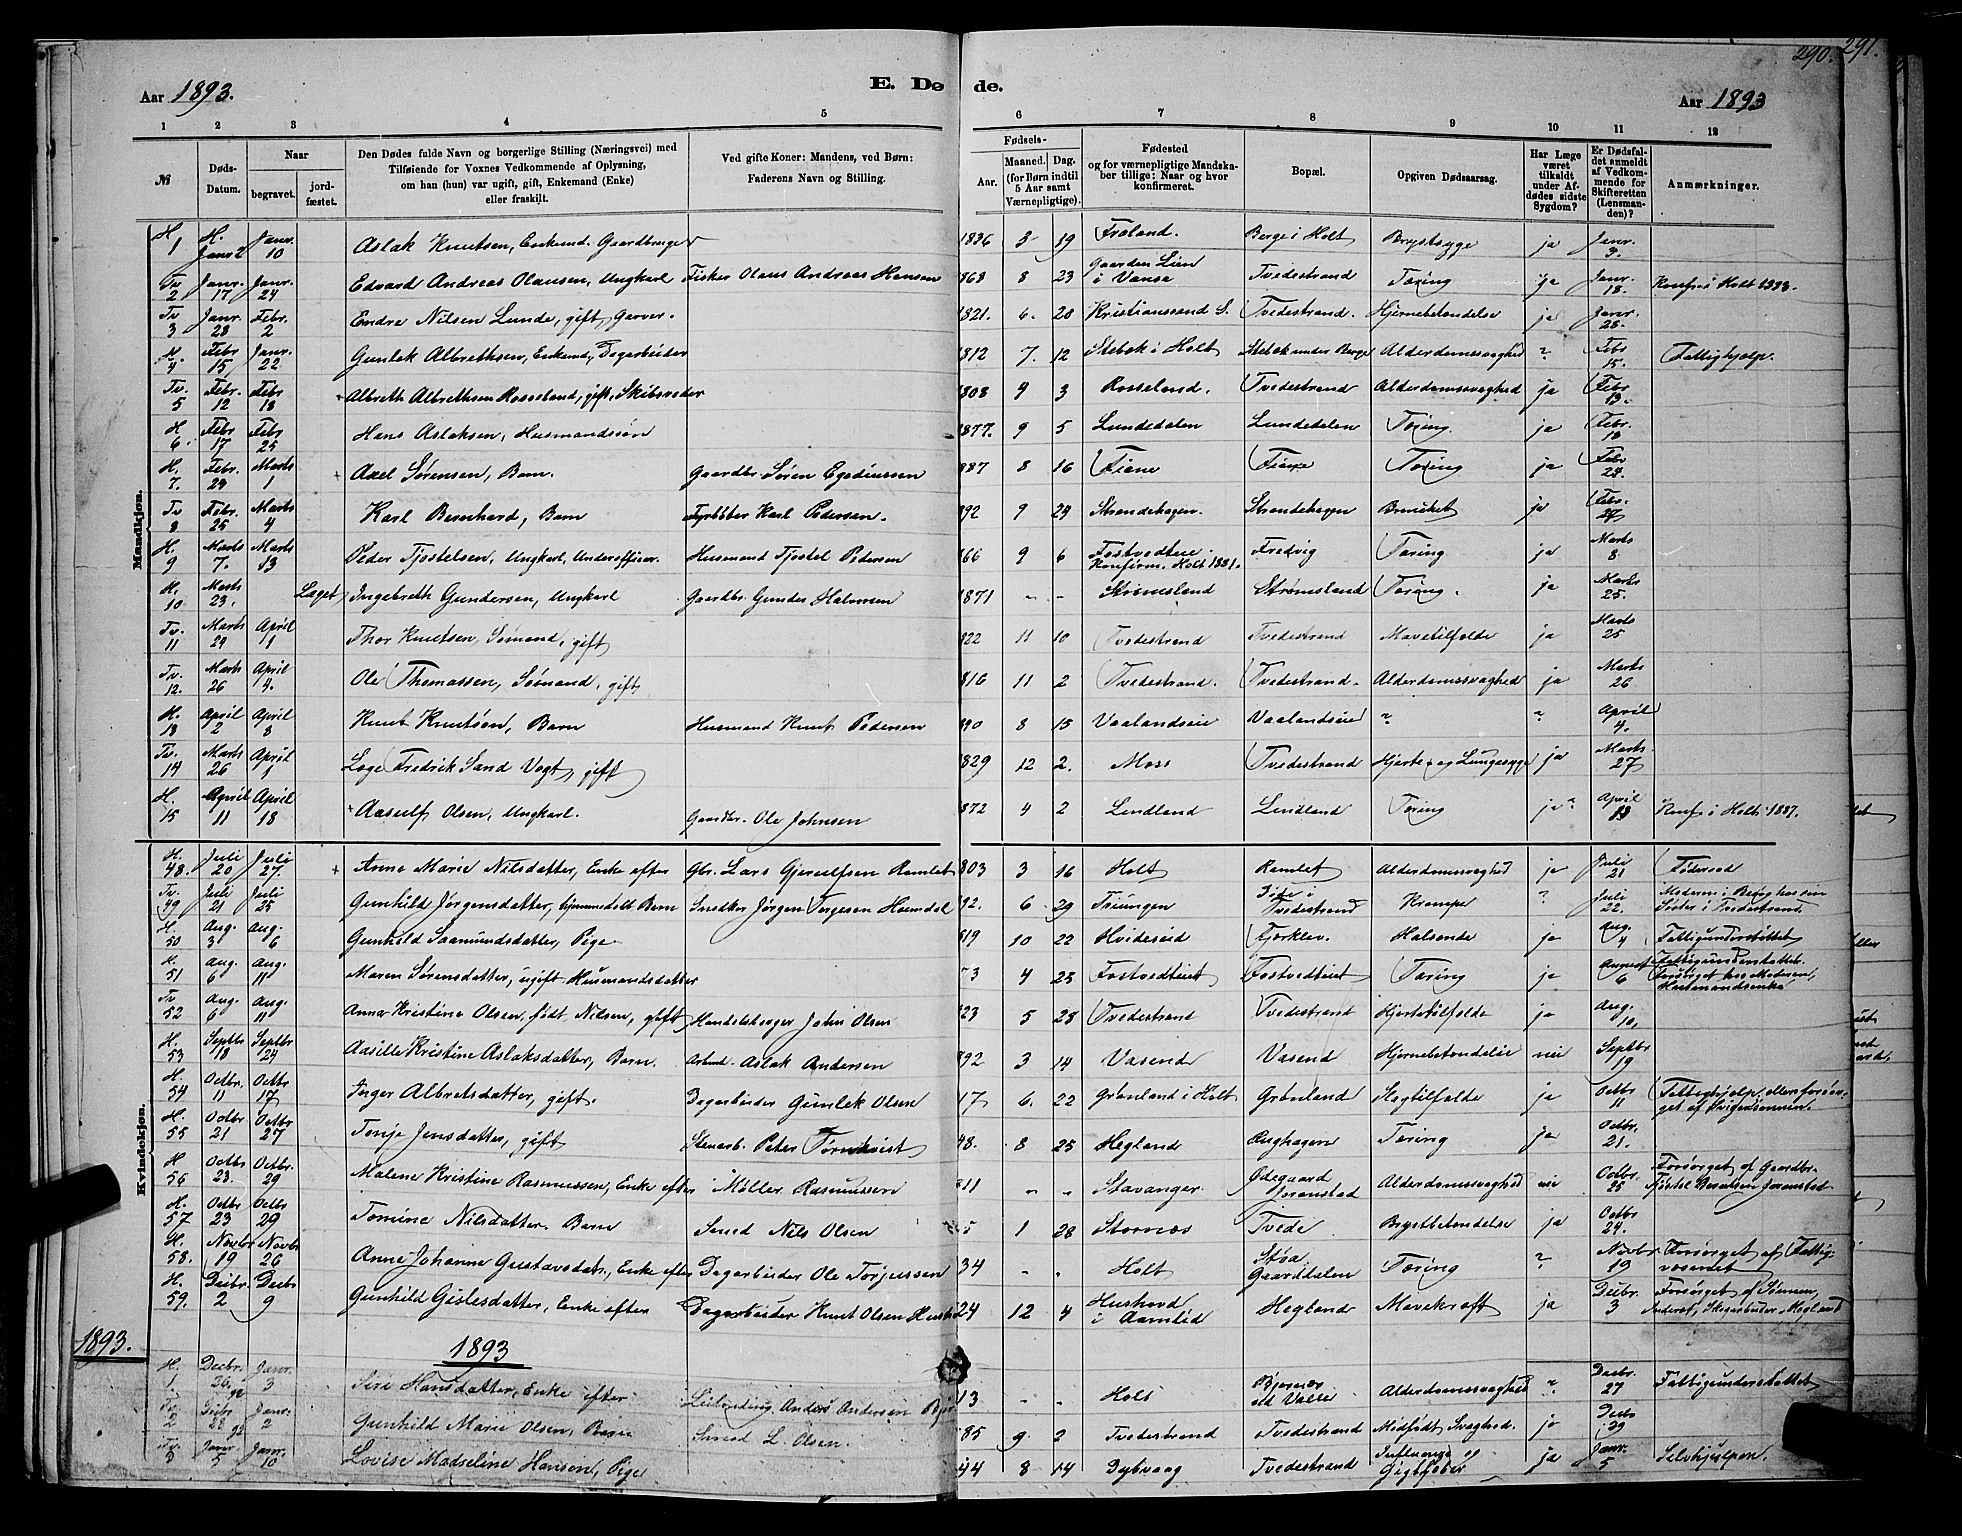 290. 291.
Aar 1893. E. Døde. Aar 1893
1 2 3 4 5 6 7 8 9 10 11 12
№ Døds-Datum. Naar begravet. jordfæstet. Den Dødes fulde Navn og borgerlige Stilling (Næringsvei) med Tilføiende for Voxnes Vedkommende af Oplysning, om han (hun) var ugift, gift, Enkemand (Enke) eller fraskilt. Ved gifte Koner: Mandens, ved Børn: Faderens Navn og Stilling. Fødsels- Aar. Maaned. Dag. (for Børn indtil 5 Aar samt Værnepligtige). Fødested og for værnepligtige Mandskaber tillige: Naar og hvor konfirmeret. Bopæl. Opgiven Dødsaarsag. Har Læge været tilkaldt under Afdødes sidste Sygdom? Er Dødsfaldet anmeldt af Vedkommende for Skifteretten (Lensmanden)? Anmærkninger.
Mandkjøn.
H. 1 H. Janr 2 Janr. 10 Aslak Knutsen, Enkemd. Gaardbruger 1836 3 19 Froland. Berge i Holt Brystsyge ja Janr. 3.
Tv 2 Janr. 17 Janr. 24 Edvard Andreas Olausen, Ungkarl Fisker Olaus Andreas Hansen 868 8 23 Gaarden Lien i Vanse Tvedestrand Tæring ja Janr. 18. Konfr. i Holt 1883.
Tv 3 Janr. 28 Febr. 2 Endre Nilsen Lunde, gift, Garver. 821. 6. 20 Kristianssand S. Tvedestrand. Hjernebetændelse ja Janr. 28.
H. 4 Febr 15 Janr. 22 Gunlek Albrethsen, Enkemd, Dagarbeider 812 7. 12 Stebok i Holt Stebok under Berge Alderdomssvaghed " Febr 15. Fattighjælp.
Tv. 5 Febr. 12 Febr 18 Albreth Albrethsen Rosseland, gift, Skibsreder 808 4 3 Rosseland. Tvedestrand Alderdomssvaghed ja Febr 13.
H 6. Febr 17 Febr 25 Hans Aslaksen, Husmandssøn 1877. 9 5 Lundedalen Lundedalen Tæring. ja Febr. 18
H. 7. Febr. 23 Marts 1 + Axel Sørensen, Barn. Gaardbr. Søren Egediussen 887 8 16 Fiane Fiane Tæring ja Febr 24.
Tv 8 Febr. 25 Marts 4 Karl Bernhard, Barn Fyrbøter Karl Pedersen. 892 9 24 Strandehagen. Strandehagen Brusket ja Febr. 27
H. 9 Marts 7. Marts 13 Peder Tjostelsen, Ungkarl, Underofficer. Husmand Tjostel Pedersen 866 9 6 Fostvedteie. Konfirm. Holt 1881. Fredvig Tæring ja Marts 8.
H. 10 Marts 23. Laget Ingebreth Gundersen, Ungkarl Gaardbr. Gunder Halvorsen 1871 - - Strømesland Strømesland Tæring. ja Marts 25.
Tv. 11 Marts 24 April 1 Thor Knutsen, Sømand, gift 822 11 10 Tvedestrand Tvedestrand Mavetilfælde ja Marts 25
Tv. 12. Marts 26 April 4. Ole Thomassen, Sømand, gift 816 11 2 Tvedestrand. Tvedestrand. Alderdomssvaghed ja Marts 26
H. 13 April 2 April 8 Knut Knutsen, Barn Husmand Knut Pedersen 890 8 15 Vaalandseie Vaalandseie " " April 4.
Tv. 14 Marts 26 April 1 Læge Fredrik Sand Vogt, gift 829 12 2. Moss Tvedestrand Hjerte- og Lungesyge ja Marts 27
H. 15 April 11 April 18 + Aasulf Olsen, Ungkarl. Gaardbr. Ole Johnsen 872 4 2 Lindland Lindland Tæring ja " April 13 Konfr. i Holt 1887.
Kvindekjøn.
H. 48. Juli 20 Juli 27. + Anne Marie Nilsdatter, Enke efter Gbr. Lars Gjerulfsen Ramlet 803 3 16 Holt Ramlet Alderdomssvaghed ja Juli 21 Føderaad
Tv. 49 Juli 21 Juli 25 Gunhild Jørgensdatter, hjemmedøbt Barn Snedker Jørgen Torgesen Homdal 92. 6. 29 Treungen Tvedestrand Krampe " Juli 22.
H. 50 Aug. 3 Aug. 6 Gunhild Saamundsdatter, Pige. 819 10 22 Hvideseid Fjærklev. Halsonde ja Aug. 4 Fattigunderstøttet
H. 51 Aug. 6 Aug. 11 Maren Sørensdatter, ugift Husmandsdatter 73 4 23 Fostvedteiet Fostvedteiet Tæring ja August 6 Fattigunderstøttet. Forsørget hos Moderen, Husmandsenke
Tv 52 Aug. 6 Aug. 11 Anna Kristine Olsen, født Nilsen, gift Handelsborger John Olsen 23 5 25 Tvedestrand Tvedestrand Hjertetilfælde ja Aug. 10.
H. 53 Septbr 18 Septbr 24 Aasille Kristine Aslaksdatter, Barn. Arbmd. Aslak Andersen 892 3 14 Vasend Vasend Hjernebetændelse nei Septbr 19
H. 54 Octbr. 11 Octbr 17 Inger Albretsdatter, gift. Dagarbeider Gunlek Olsen 17 6. 22 Grønland i Holt Grønland Slagtilfælde ja Octbr 11
H. 55 Octbr 21 Octbr 27 Tonje Jensdatter, gift Stenarb. Peter Törnkvist 48. 8 25 Hegland Tæring ja Octbr. 21.
H 56 Octbr 23. Octbr. 29 Malene Kristine Rasmussen, Enke efter Møller Rasmussen 811 - - Stavanger. Ødegaard Joranstad Alderdomssvaghed nei Octbr. 25 Forsørget af Gaardbr.
H. 57 Octbr 23 Octbr 29 Tomine Nilsdatter. Barn Smed Nils Olsen 5 1 28 Stornæs Tvede Brystbetændelse ja Octbr 24.
H. 58. Novbr 19 Novbr 26 Anne Johanne Gustavsdatr., Enke efter Dagarbeider Ole Torjussen 34 - - Holt Støa Gaarddalen Tæring " Novbr 19 Forsørget af Fattigvæsenet
H. 59. Decbr 2 Decbr 9 Gunhild Gislesdatter, Enke efter Dagarbeider Knut Olsen 24 12 4 Hushovd i Aamlid Hegland Mavekræft ja Decbr. 3 Forsørget af Sønnen,
1893. 1893
H. 1 Decbr. 26. 92 Janr. 3 Siri Hansdatter, Enke efter Leilending Anders Andersen 13 - - Holt Alderdomssvaghed " Decbr 27 Fattigunderstøttet
Tv 2 Decbr 28 92 Janr. 2 Gunhild Marie Olsen, Barn Smed L. Olsen. 85 9. 2 Tvedestrand Tvedestrand Medfødt Svaghed. ja Decbr 29
Tv. 3 Janr. 5 Janr. 10 Lovise Madseline Hansen, Pige 44 8 14 Dybvaag Tvedestrand Influenza og Gigtfeber ja Janr. 5 Selvhjulpen.